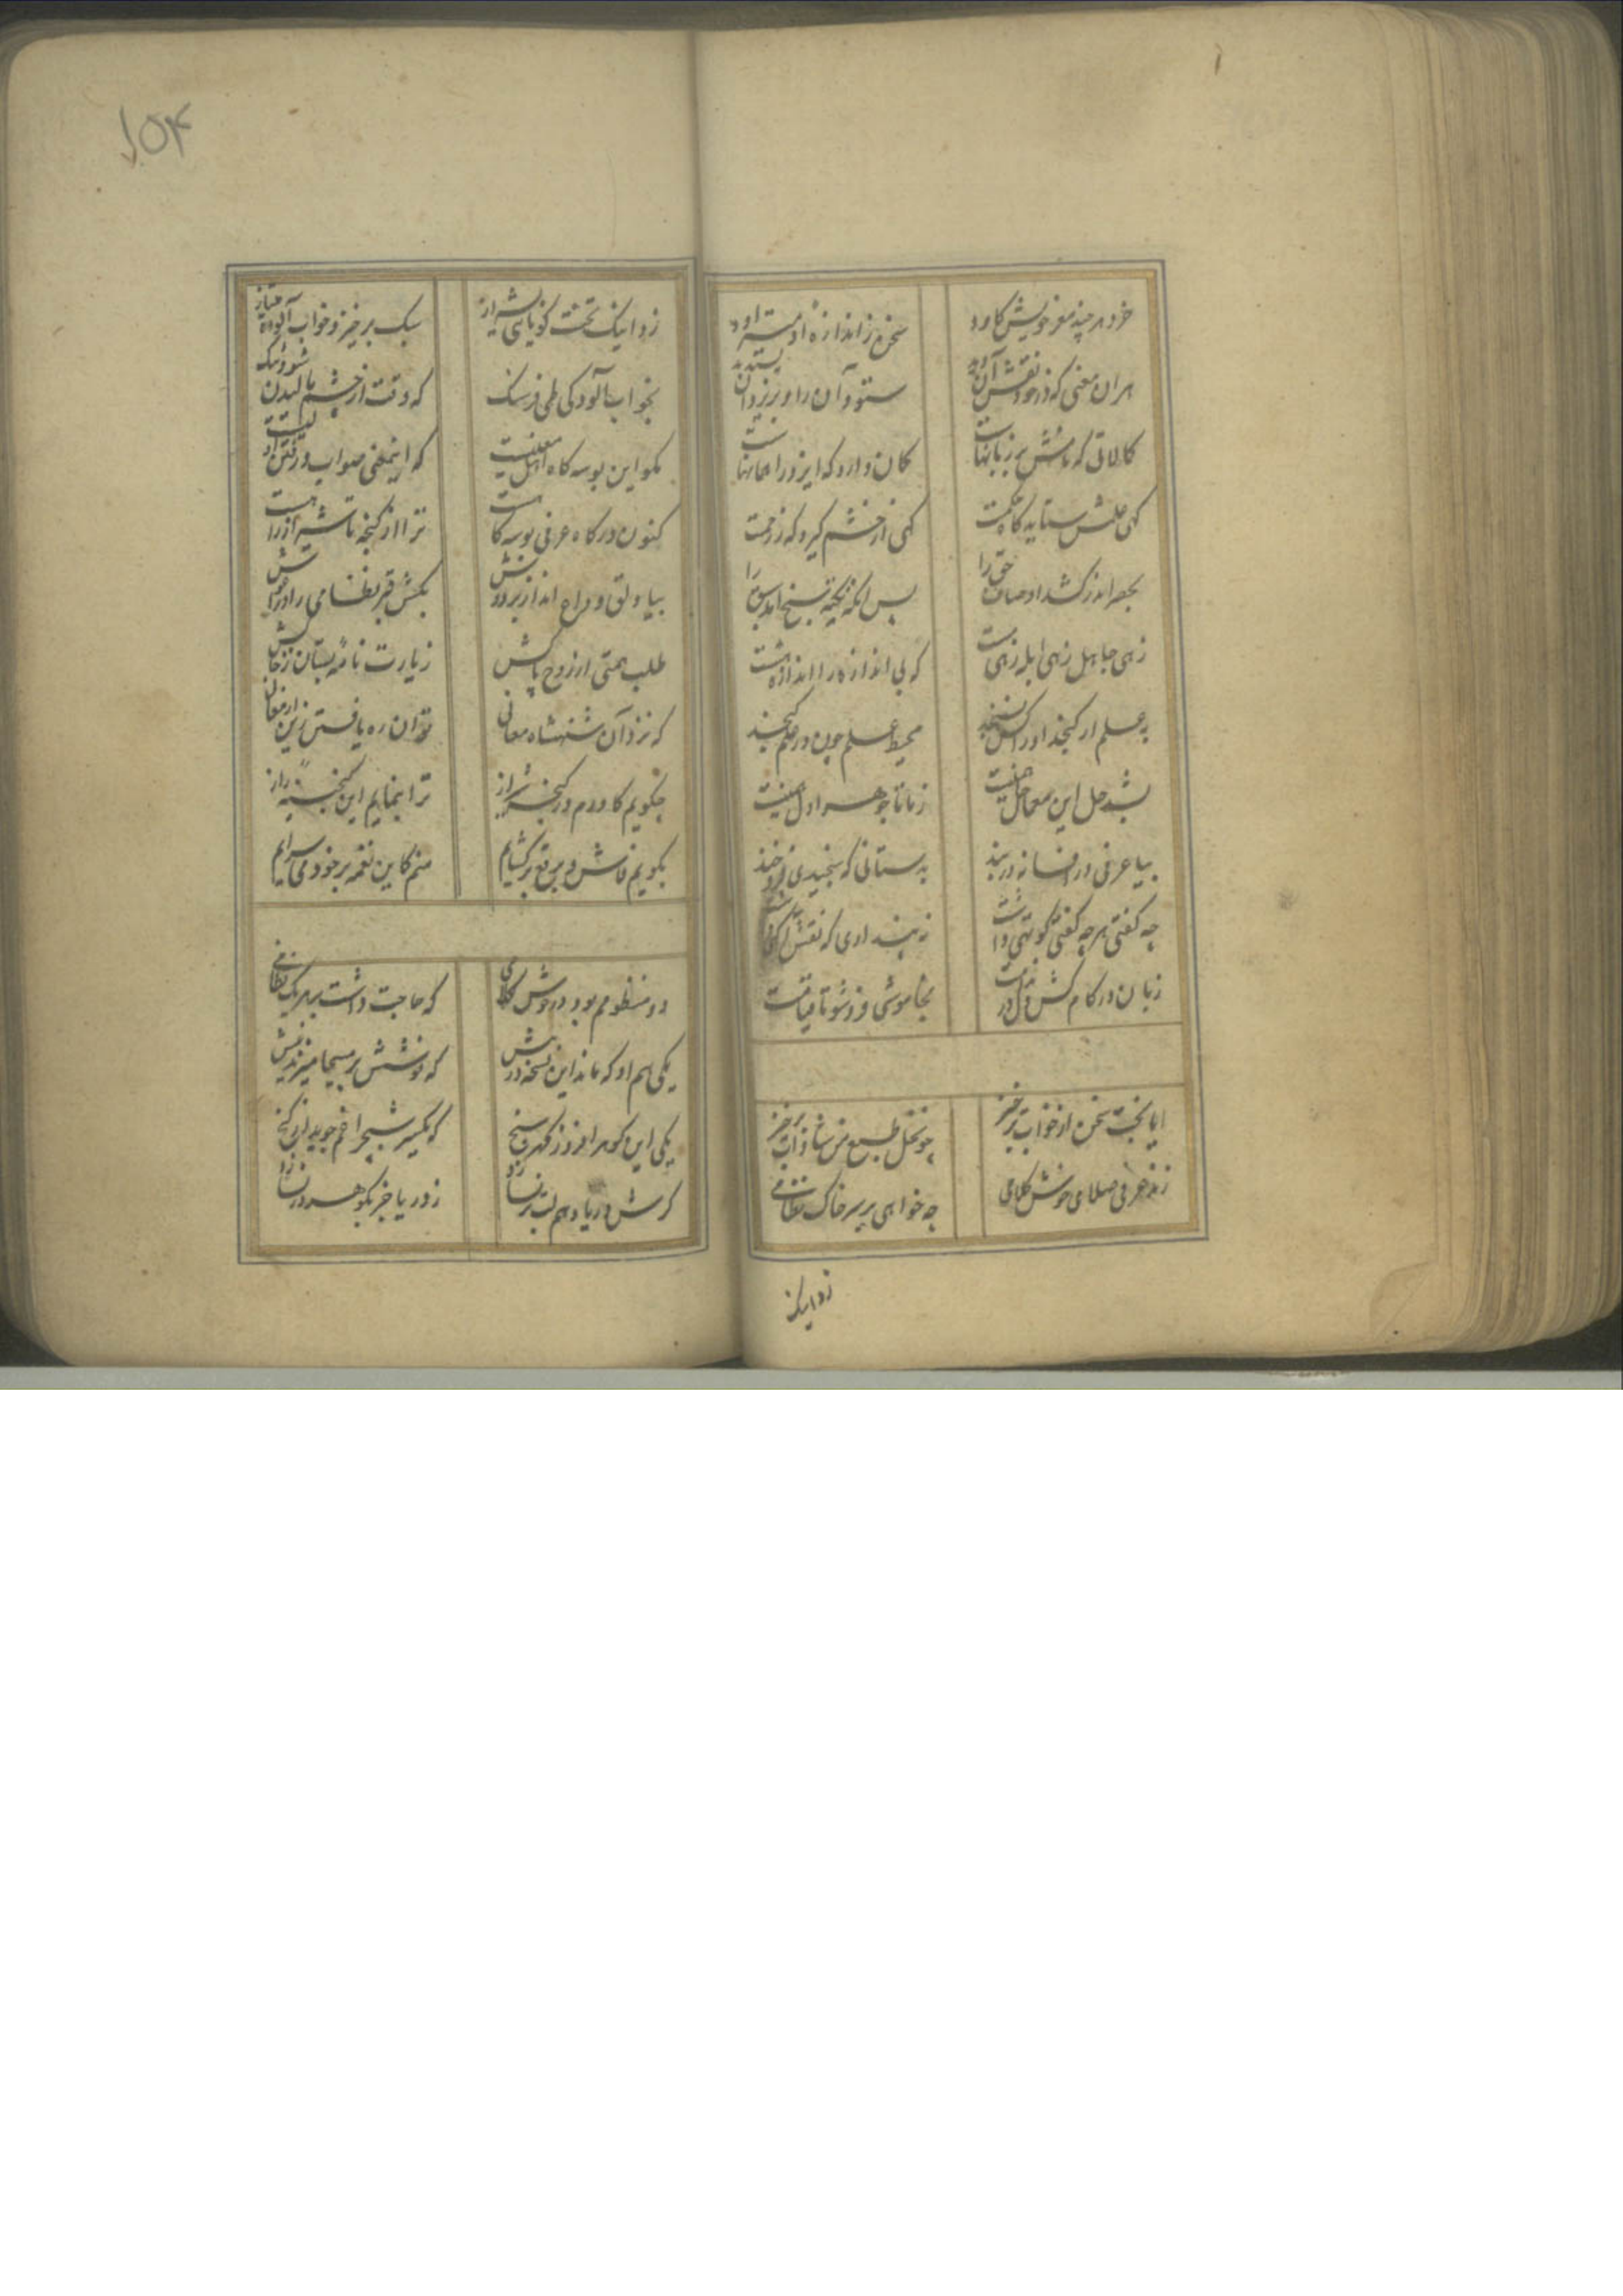 ۱۵۴
خرد هر چند مغز خویش کاود سخن ز اندازه او می تراود
هران معنی که در خود نقش آن دید ستود آن را و بر یزدان پسندید
کمالاتی که نامش بر زبانهاست کمان دارد که ایزد را همانهاست
کهی علمش ستاید کاه حکمت کهی از خشم کیرد که ز رحمت
بحصر اندر کشد اوصاف حق را پس انکه نکته سنج آمد سبق را
زهی جاهل زهی ابله زهی که بی اندازه را اندازه
به علم ار کنجد او را کس نسنجد محیط علم چون در علم کنجد
نشد حل این معما حل
بیا عرفی در افسانه در بند به دستانی که سنجیدی فرو خند
چه کفتی هر چه کفتی کوتهی داشت نه پنداری که نقش
زبان در کام کش بخاموشی فرو شو تا قیامت
ایا بخت سخن از خواب برخیز چو نخل طبع من شاداب برخیز
زند عرفی صلای خوش کلامی چه خواهی بر سر خاک نظامی
زد اینک
زد اینک تخت کویایی شیراز سبک برخیز و خواب آلوده
بخواب آلودکی طی فرسنک که وقت از چشم مالیدن شود تنک
مکو این بوسه کاه اهل معنیست که این معنی صواب و رفتن اولیست
کنون درکاه عرفی بوسه کاهست ترا از کنجه تا شیراز راهست
بیا و لق وداع انداز بر دوش بکش قبر نظامی را در آغوش
طلب همتی از روح پاکش زیارت نامه بستان ز خاکش
که نزد آن شهنشاه معانی توان ره یافتن زین ارمغانی
چکویم کاوردم در کنجه شیراز ترا بنمایم این کنجینه راز
بکویم فاش و برقع برکشایم منم کاین نغمه بر خود می سرایم
دو منظومم بود در خوش کلامی که حاجت داشت بر هر یک نظامی
یکی هم او که ماند این نسخه در پیش که نوشش بر مسیحا میزند نیش
یکی این کوهر افروز کهر سنج
کرش دریا دهم لب تر نسازد ز دریا جز بکوهر در نسازد